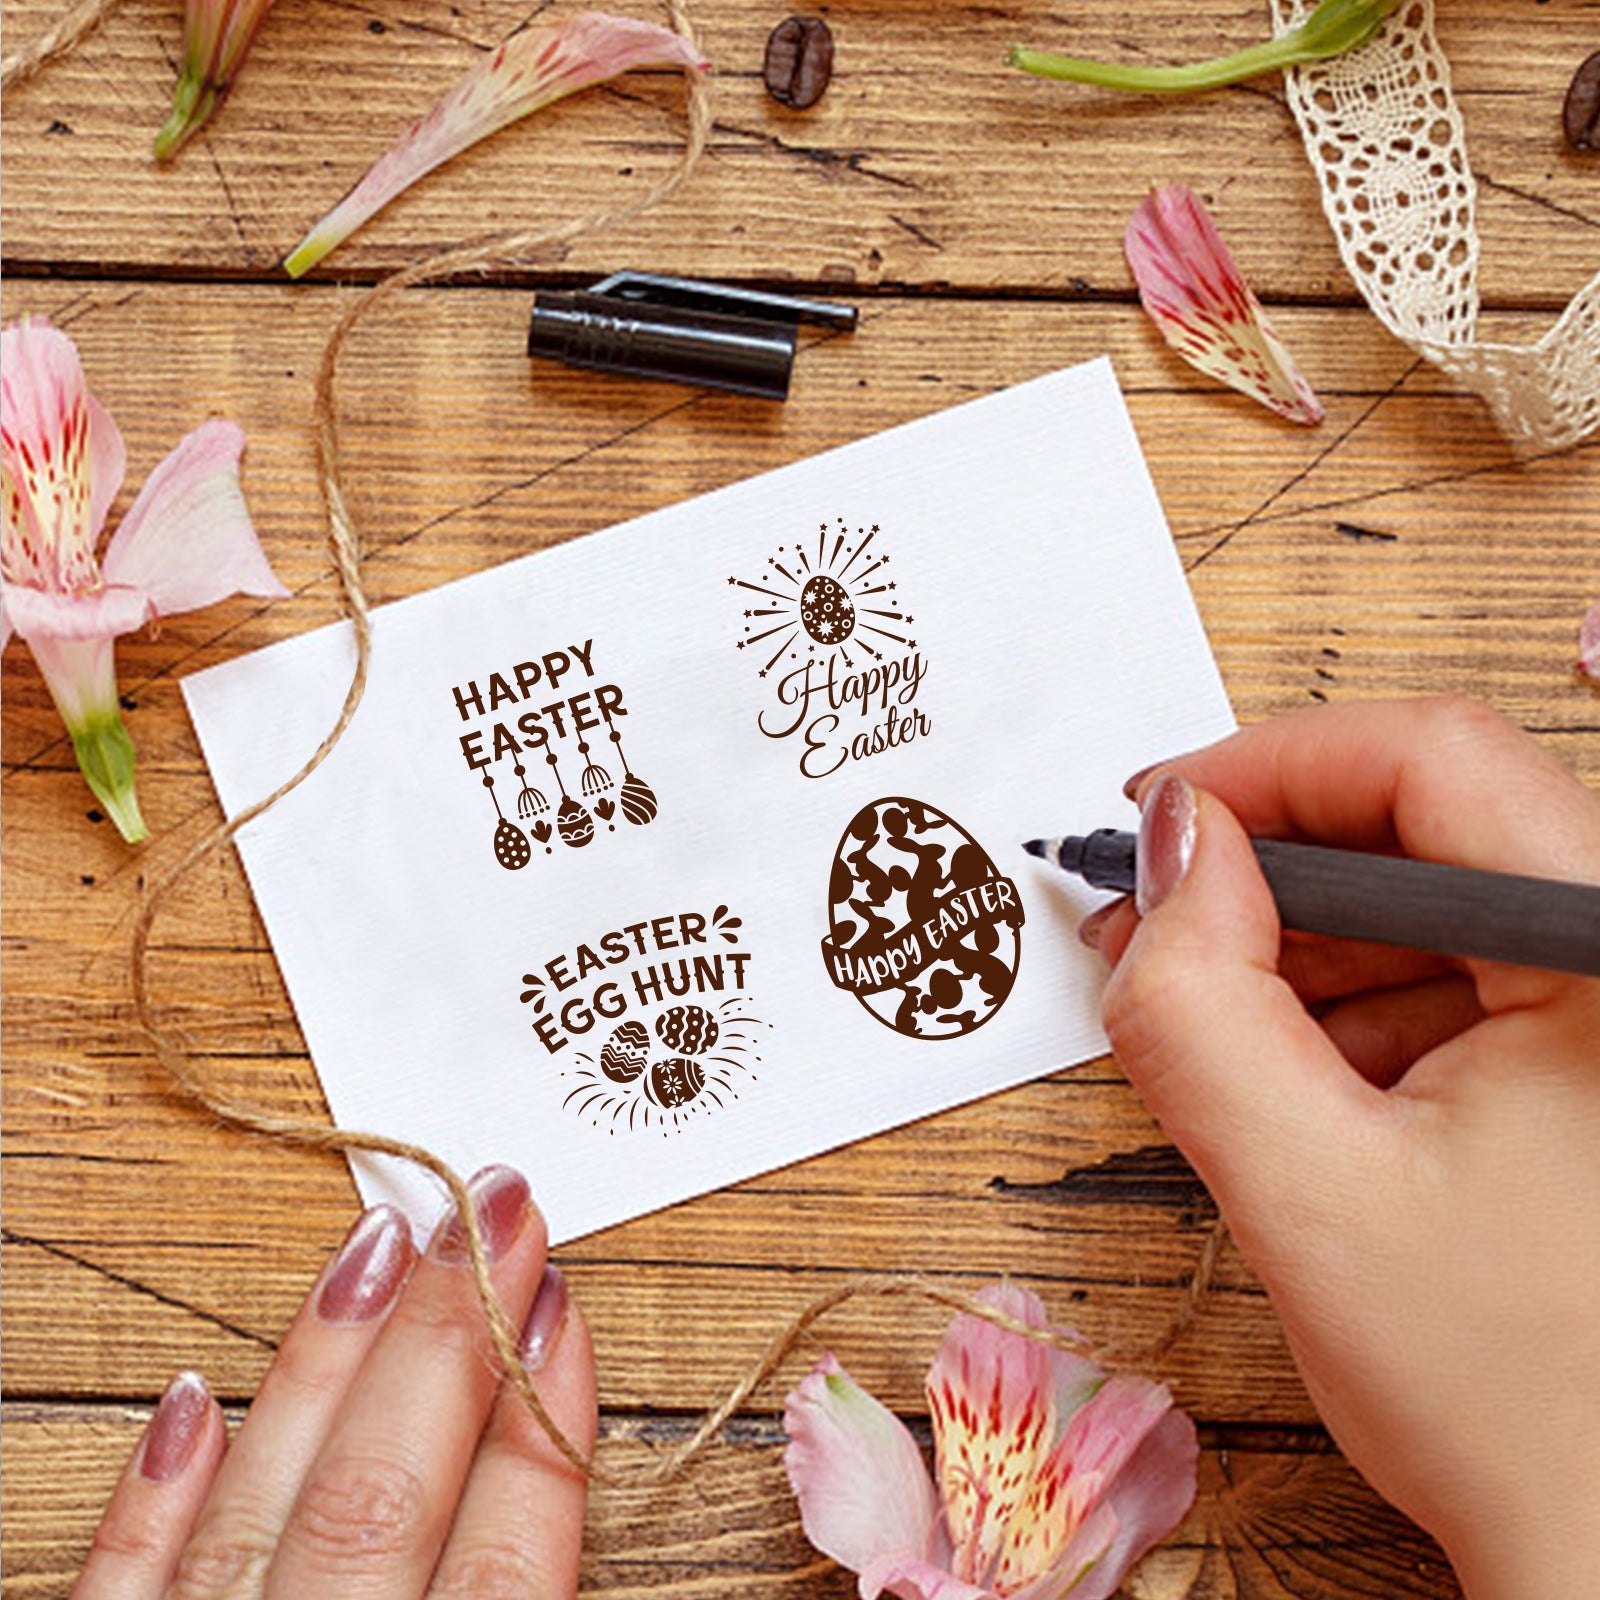 HAPPY
EASTER
Happy
Easter
EASTER
EGG HUNT
HAPPY EASTER